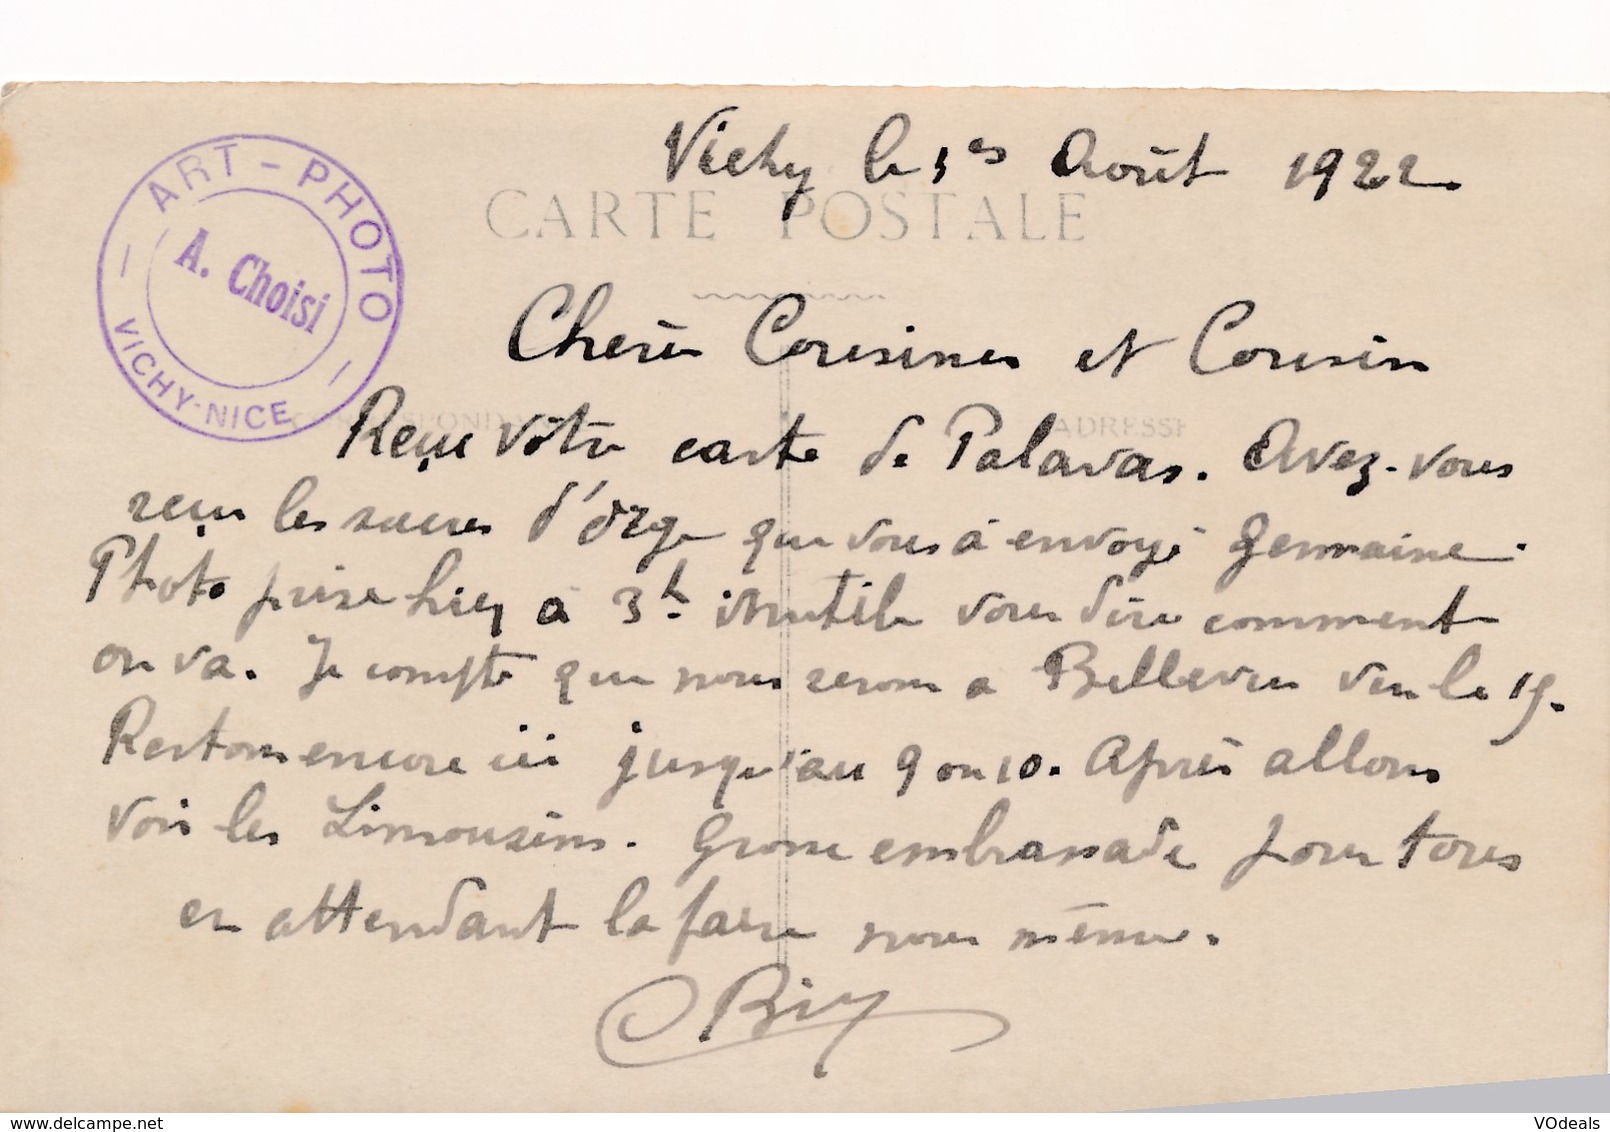 Vichy le 1er Août 1922.
CARTE POSTALE
ART-PHOTO
A. Choisi
VICHY-NICE
Cheres Cousines et Cousin
CORRESPONDANCE
ADRESSE
Reçu Vôtre carte de Palavas. Avez-vous
reçu les sucres d'orge que vous à envoyé Germaine.
Photo prise hier à 3h inutile vous dire comment
on va. Je compte que nous serons a Bellevue ven le 15.
Restons encore ici jusqu'au 9 ou 10. Après allons
voir les Limousins. Grosse embrassade pour tous
en attendant la faire nous même.
VOdeals